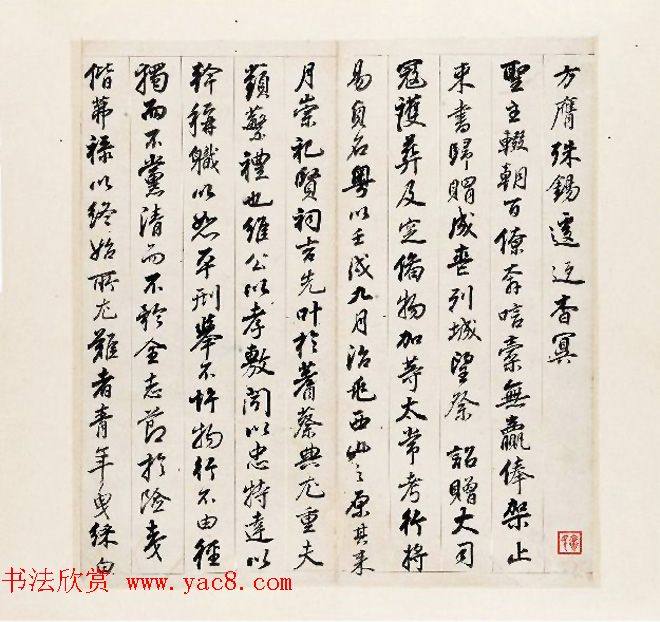 方膺殊錫遽迓杳冥
聖主輟朝百僚奔唁橐無贏俸架止
束書歸賵成喪列城望祭 詔贈大司
冠護葬及窆備物加等太常考行將
易貞名粵以壬戌九月治兆西山之原其年
月崇祀賢祠吉先叶於蓍蔡典尤重夫
蘋蘩禮也維公以孝敷聞以忠特達以
幹稱職以恕平刑舉不忤物行不由徑
獨而不黨清而不矜全志節於險夷
偕茀祿以終始所尤難者青年曳綵白
书法欣赏 www.yac8.com